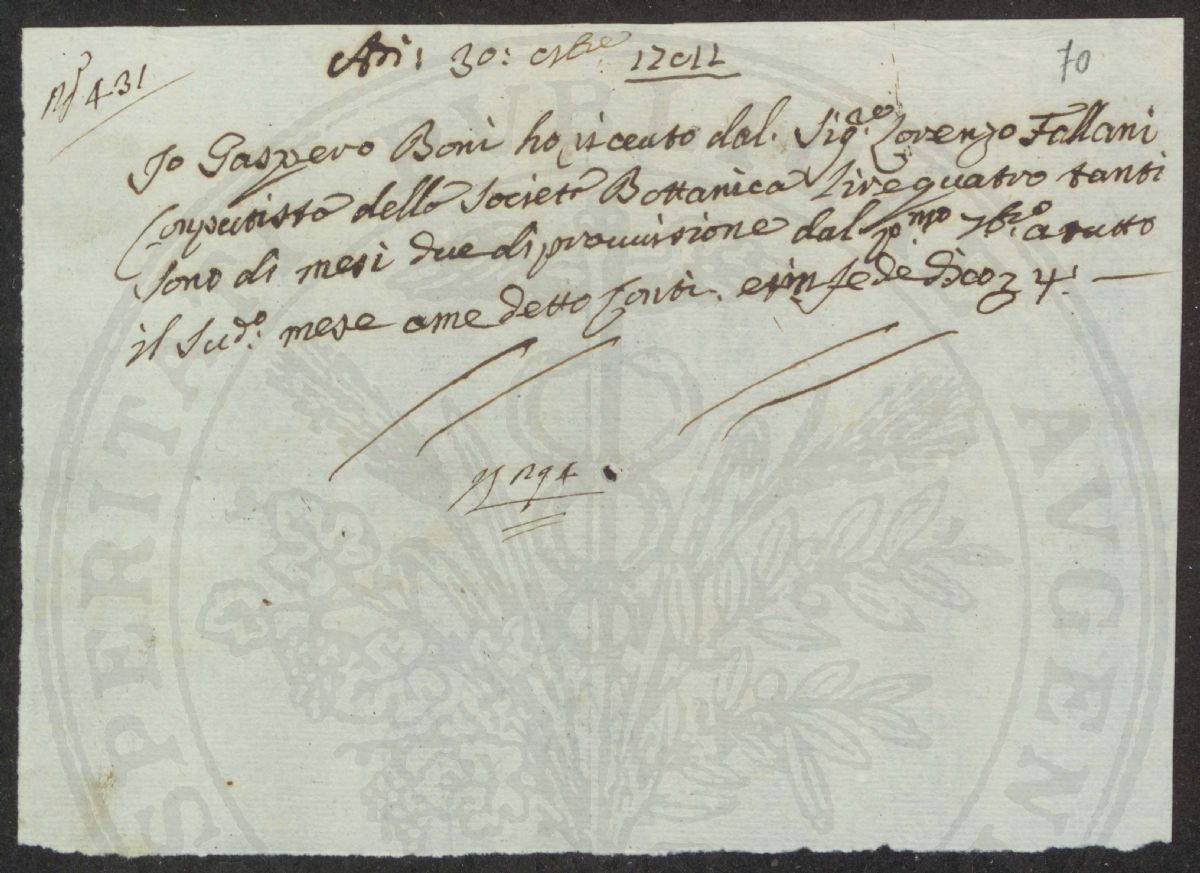 N.º 431
Adi: 30: 8bre 
70
Io Gaspero Boni ho riceuto dal. Sig.re Lorenzo Fallani
Conputista della Societa Bottanica Lire quatro tanti
sono di mesi due di prouuisione dal p.mo 7bre a tutto
il Sud.o mese a me detto Conti. e in fede dico 4:
4
PROSPERITATI PUBLICAE AUGENDAE